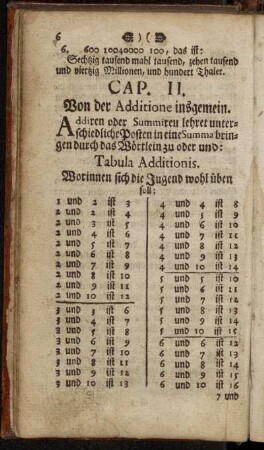 6 ) (
6. 600 10040000 100, das ist:
Sechtzig tausend mahl tausend, zehen tausend
und viertzig Millionen, und hundert Thaler.
CAP. II.
Von der Additione insgemein.
Addiren oder Summiren lehret unter-
schiedliche Posten in eine Summa brin-
gen durch das Wörtlein zu oder und:
Tabula Additionis.
Worinnen sich die Jugend wohl üben
soll:
1 und 2 ist 3
2 und 2 ist 4
2 und 3 ist 5
2 und 4 ist 6
2 und 5 ist 7
2 und 6 ist 8
2 und 7 ist 9
2 und 8 ist 10
2 und 9 ist 11
2 und 10 ist 12
3 und 3 ist 6
3 und 4 ist 7
3 und 5 ist 8
3 und 6 ist 9
3 und 7 ist 10
3 und 8 ist 11
3 und 9 ist 12
3 und 10 ist 13
4 und 4 ist 8
4 und 5 ist 9
4 und 6 ist 10
4 und 7 ist 11
4 und 8 ist 12
4 und 9 ist 13
4 und 10 ist 14
5 und 5 ist 10
5 und 6 ist 11
5 und 7 ist 12
5 und 8 ist 13
5 und 9 ist 14
5 und 10 ist 15
6 und 6 ist 12
6 und 7 ist 13
6 und 8 ist 14
6 und 9 ist 15
6 und 10 ist 16
7 und